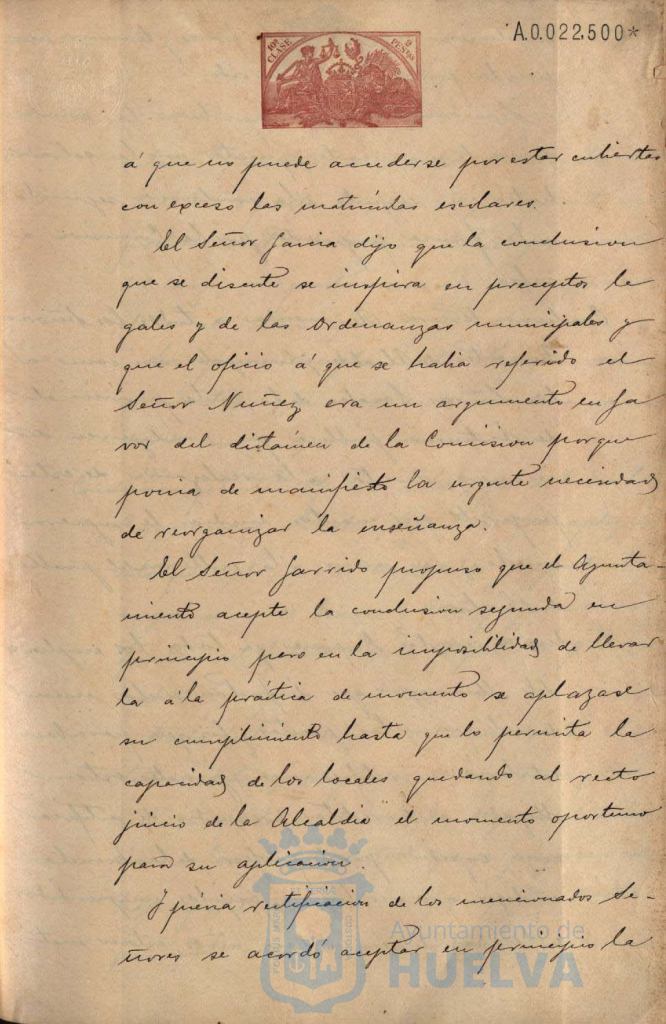 10ª CLASE
2 PESETAS
A.0.022.500*
á que no puede accederse por estar cubiertas
con exceso las matrículas escolares.
El Señor Garcia dijo que la conclusion
que se discute se inspira en preceptos le
gales y de las Ordenanzas municipales y
que el oficio á que se habia referido el
Señor Nuñez era un argumento en fa
vor del dictámen de la Comision porque
ponia de manifiesto la urgente necesidad
de reorganizar la enseñanza.
El Señor Garrido propuso que el Ayunta-
miento acepte la conclusion segunda en
principio pero en la imposibilidad de llevar
la á la práctica de momento se aplazase
su cumplimiento hasta que lo permita la
capacidad de los locales quedando al recto
juicio de la Alcaldia el momento oportuno
para su aplicacion.
Y prévia rectificacion de los mencionados Se-
ñores se acordó aceptar en principio la
Ayuntamiento de
HUELVA